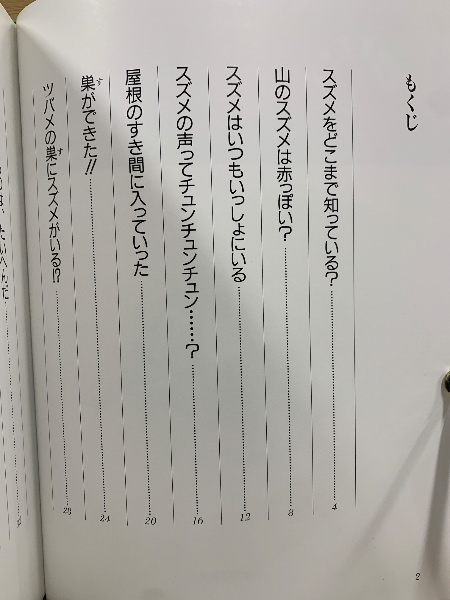 もくじ
スズメをどこまで知っている?……4
山のスズメは赤っぽい?……8
スズメはいつもいっしょにいる……12
スズメの声ってチュンチュンチュン……?……16
屋根のすき間に入っていった……20
巣ができた!!……24
ツバメの巣にスズメがいる!?……28
2